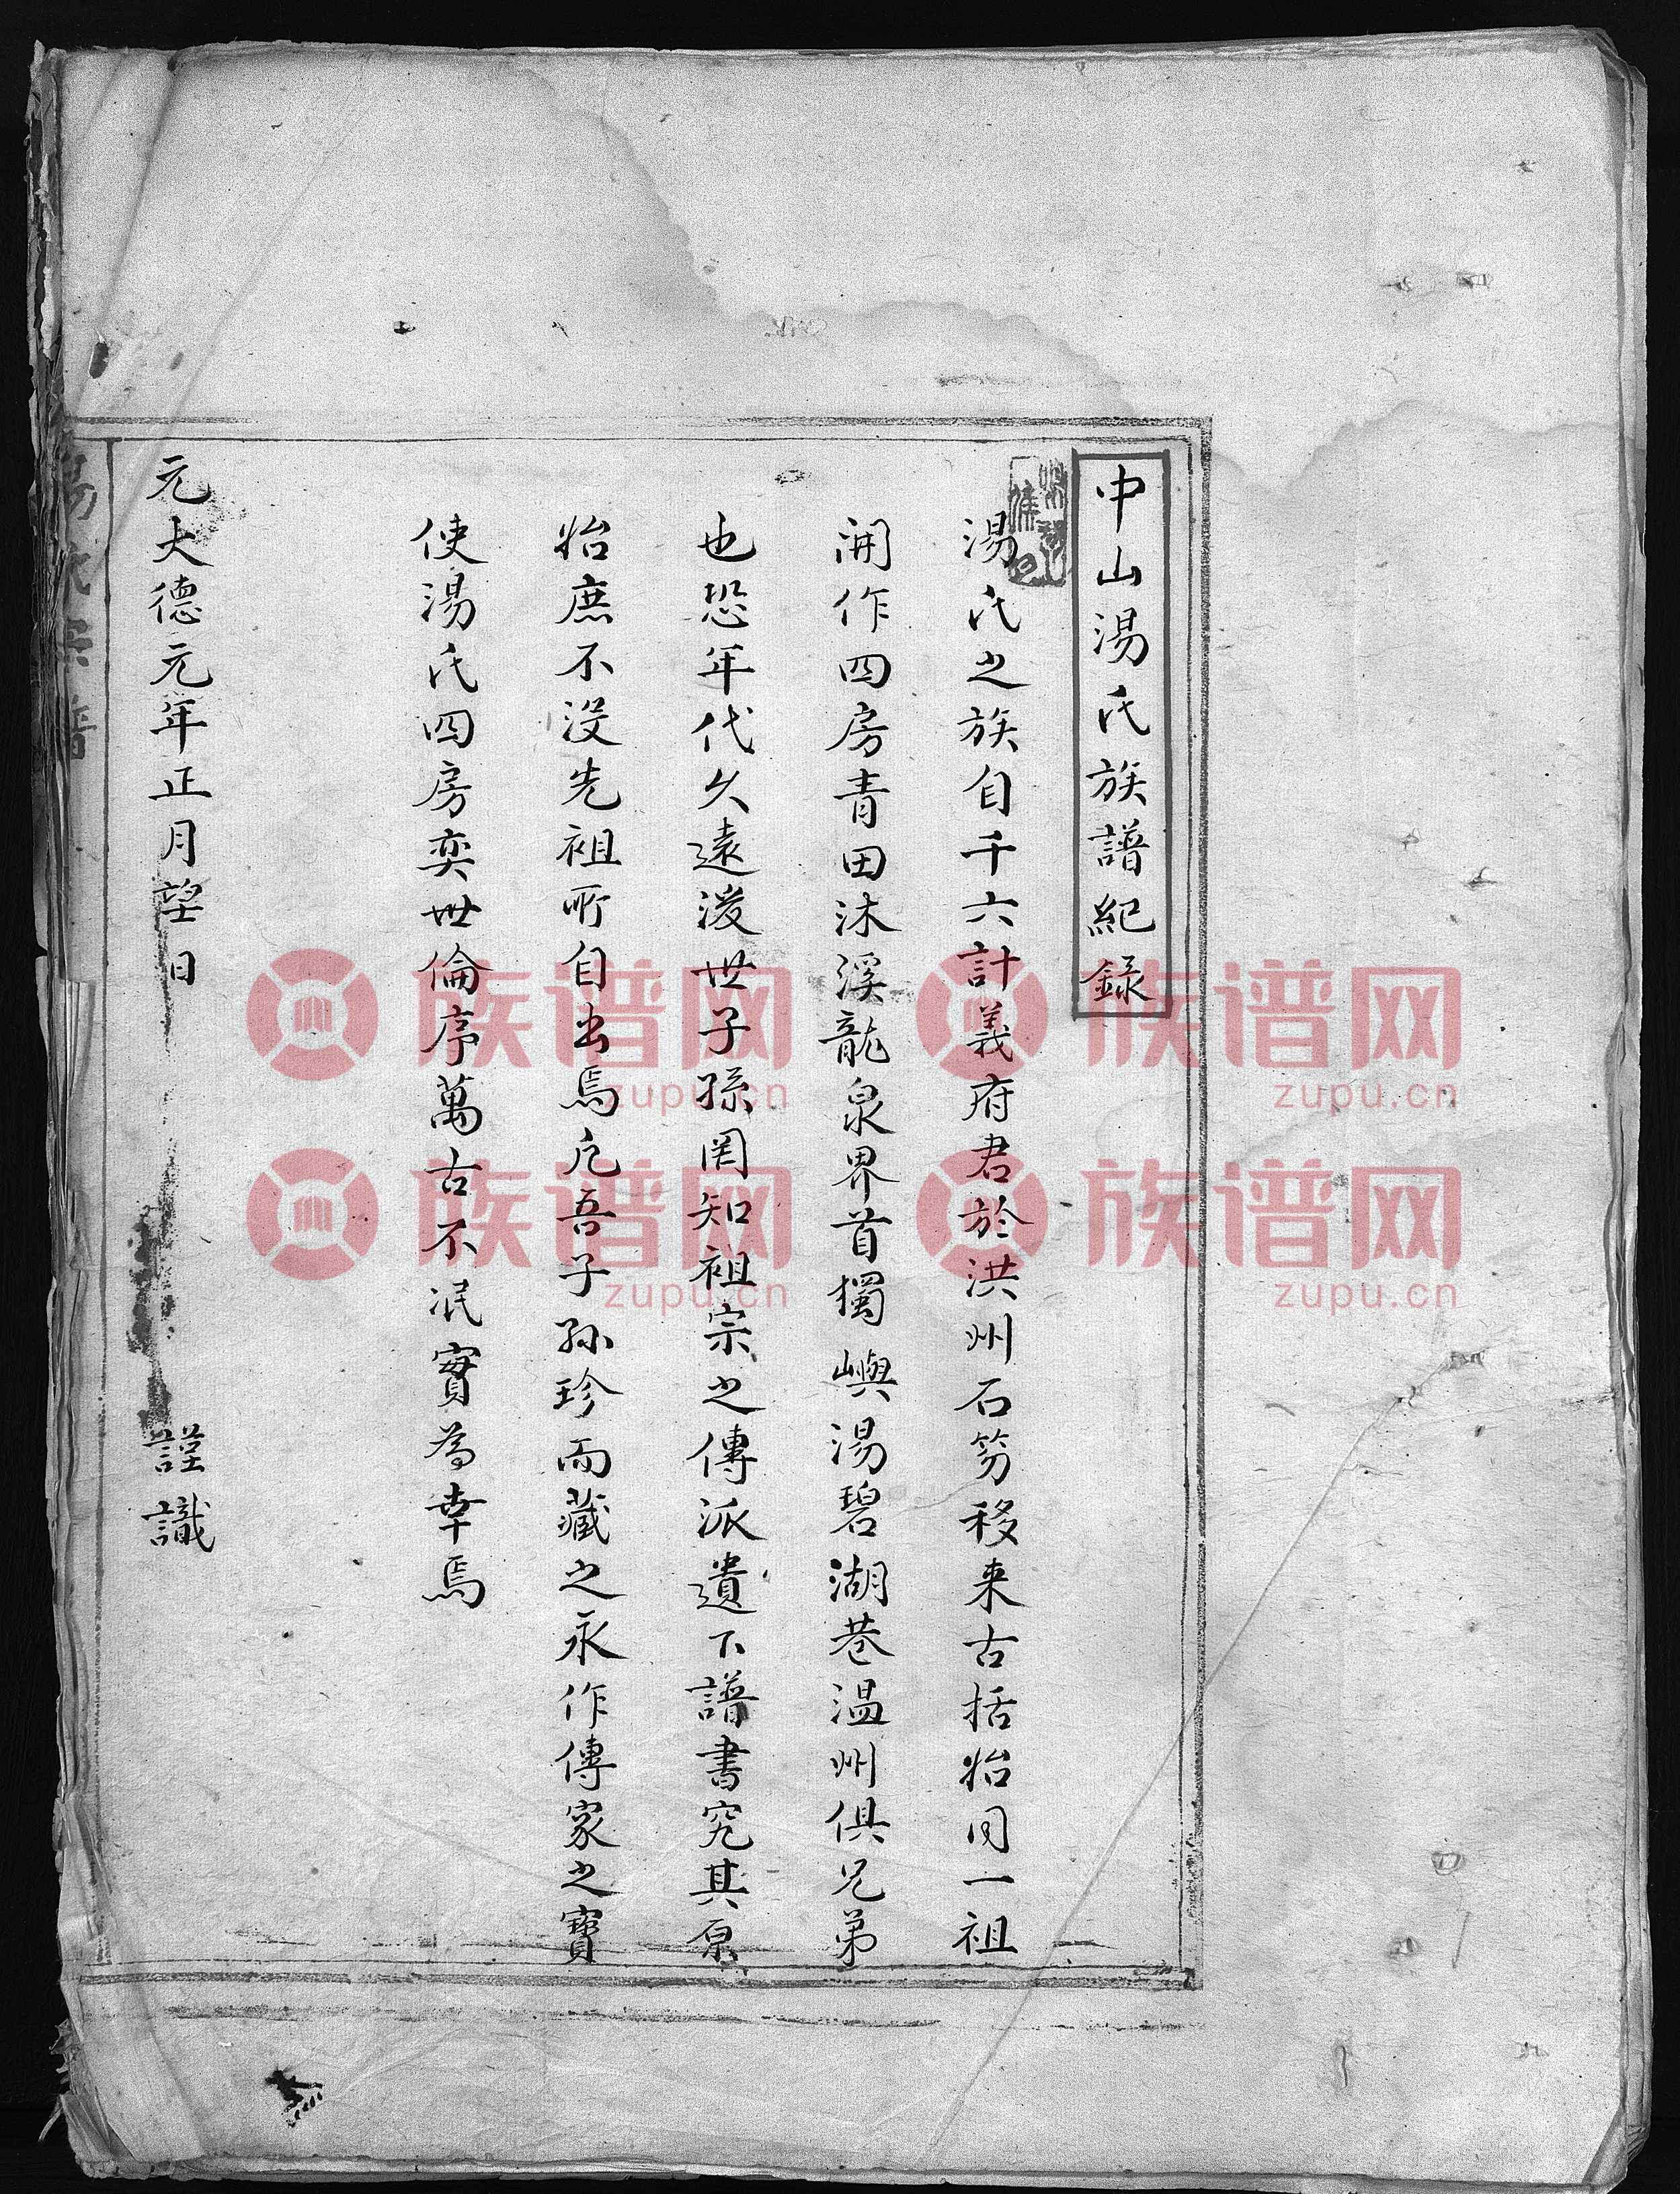 中山湯氏族譜紀錄
湯氏之族自千六計義府君於洪州石笏移来古括始同一祖
開作四房青田沐溪龍泉界首獨嶼湯碧湖巷温州俱兄弟
也恐年代久遠後世子孫罔知祖宗之傳派遺下譜書究其原
始庶不没先祖所自出焉凡吾子孫珍而藏之永作傳家之寶
使湯氏四房奕世倫序萬古不泯實為幸焉
元大德元年正月望日 謹識
湯氏宗譜
族谱网
zupu.cn
族谱网
zupu.cn
族谱网
zupu.cn
族谱网
zupu.cn